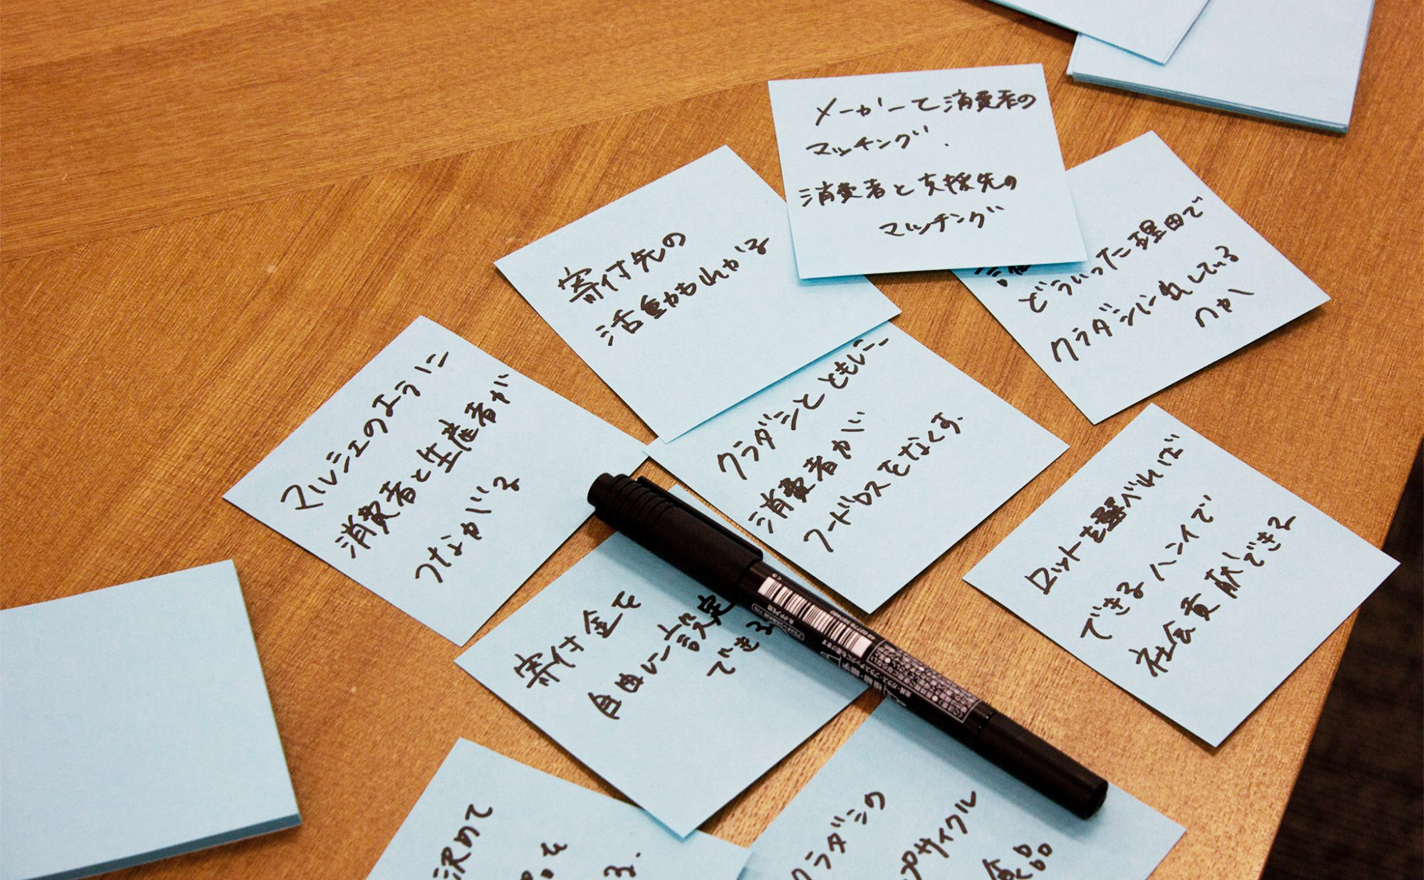 メーカーて消費者の
マッチング.
消費者と支援先の
マッチング
寄付先の
活動がわかる
どういった理由で
クラダシに出している
のか
マルシェのように
消費者と生産者が
つながる
クラダシとともに
消費者が
フードロスをなくす.
ロットを選べれば
できるハンイで
社会貢献できる
寄付金を
自由に設定
できる
決めて
を
る.
クラダシの
プサイクル
食品